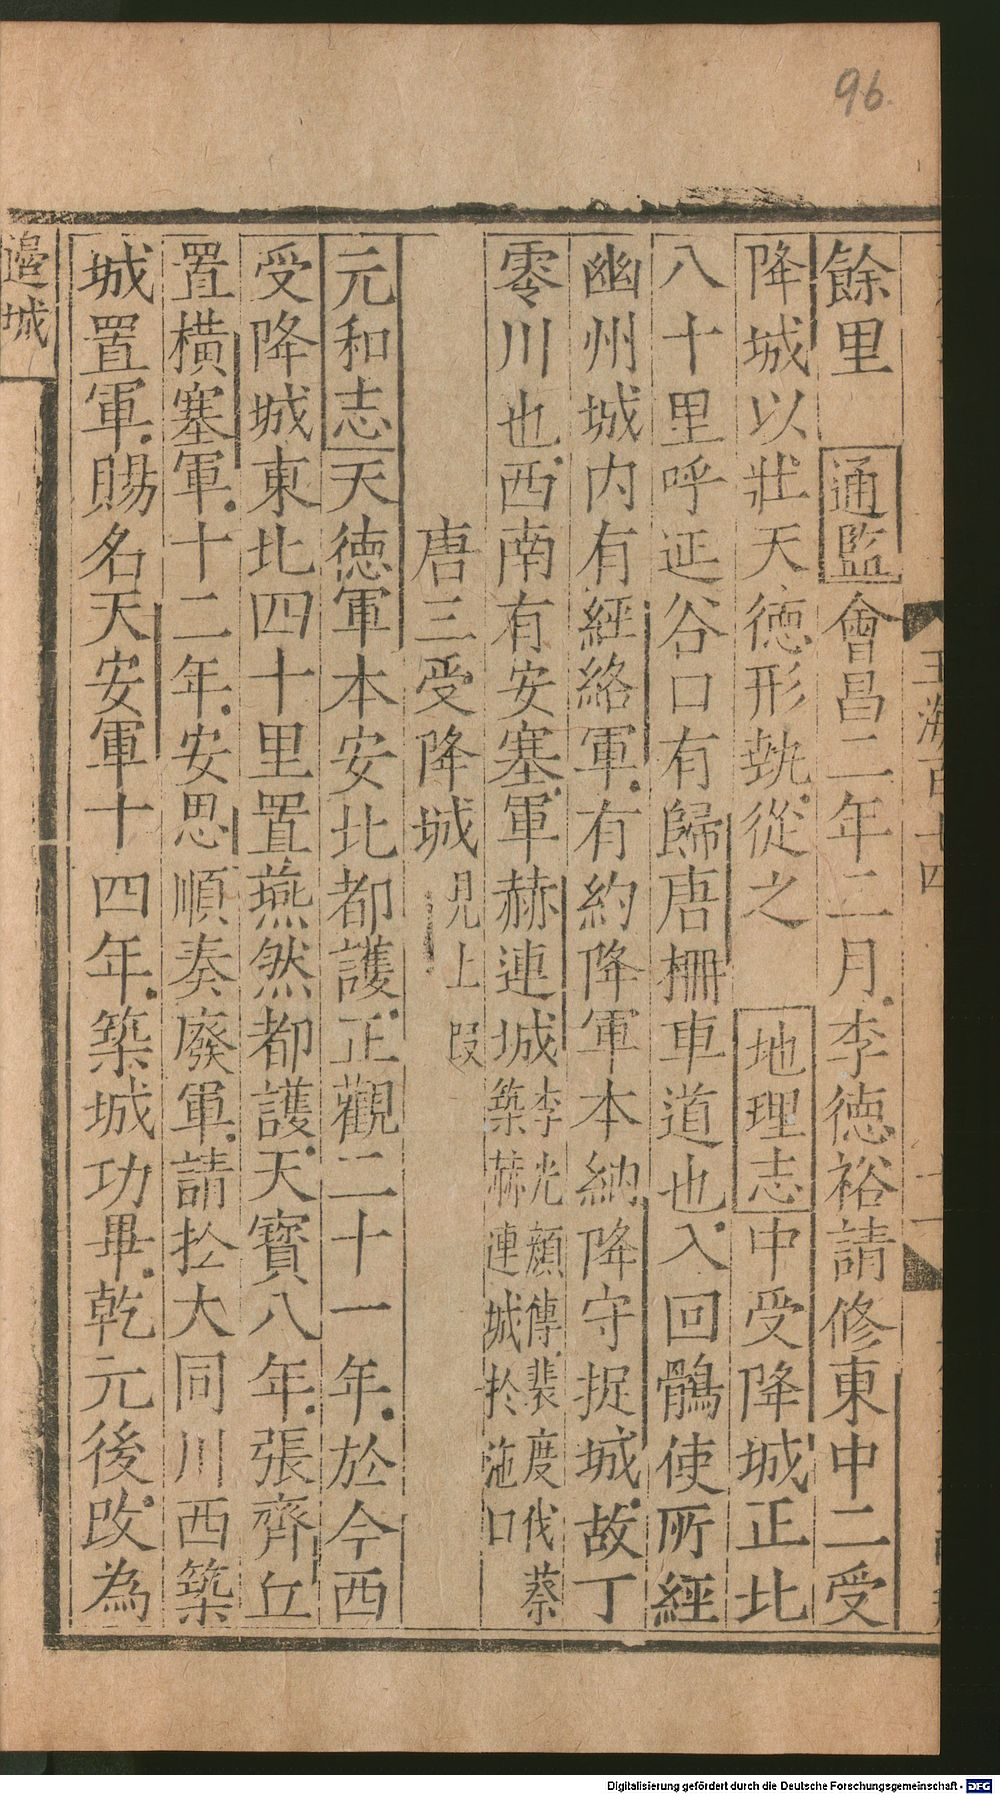 96
餘里 通監會昌二年二月李德裕請修東中二受
降城以壯天德形埶從之 地理志中受降城正北
八十里呼延谷口有歸唐柵車道也入回鶻使所經
幽州城内有經絡軍有約降軍本納降守捉城故丁
零川也西南有安塞軍赫連城李光顔傳裴度伐蔡
築赫連城扵沲口
唐三受降城見上叚
元和志天德軍本安北都護正觀二十一年於今西
受降城東北四十里置燕然都護天寶八年張齊丘
置橫塞軍十二年安思順奏廢軍請扵大同川西築
城置軍賜名天安軍十四年築城功畢乾元後改為
邉城
Digitalisierung gefördert durch die Deutsche Forschungsgemeinschaft - DFG